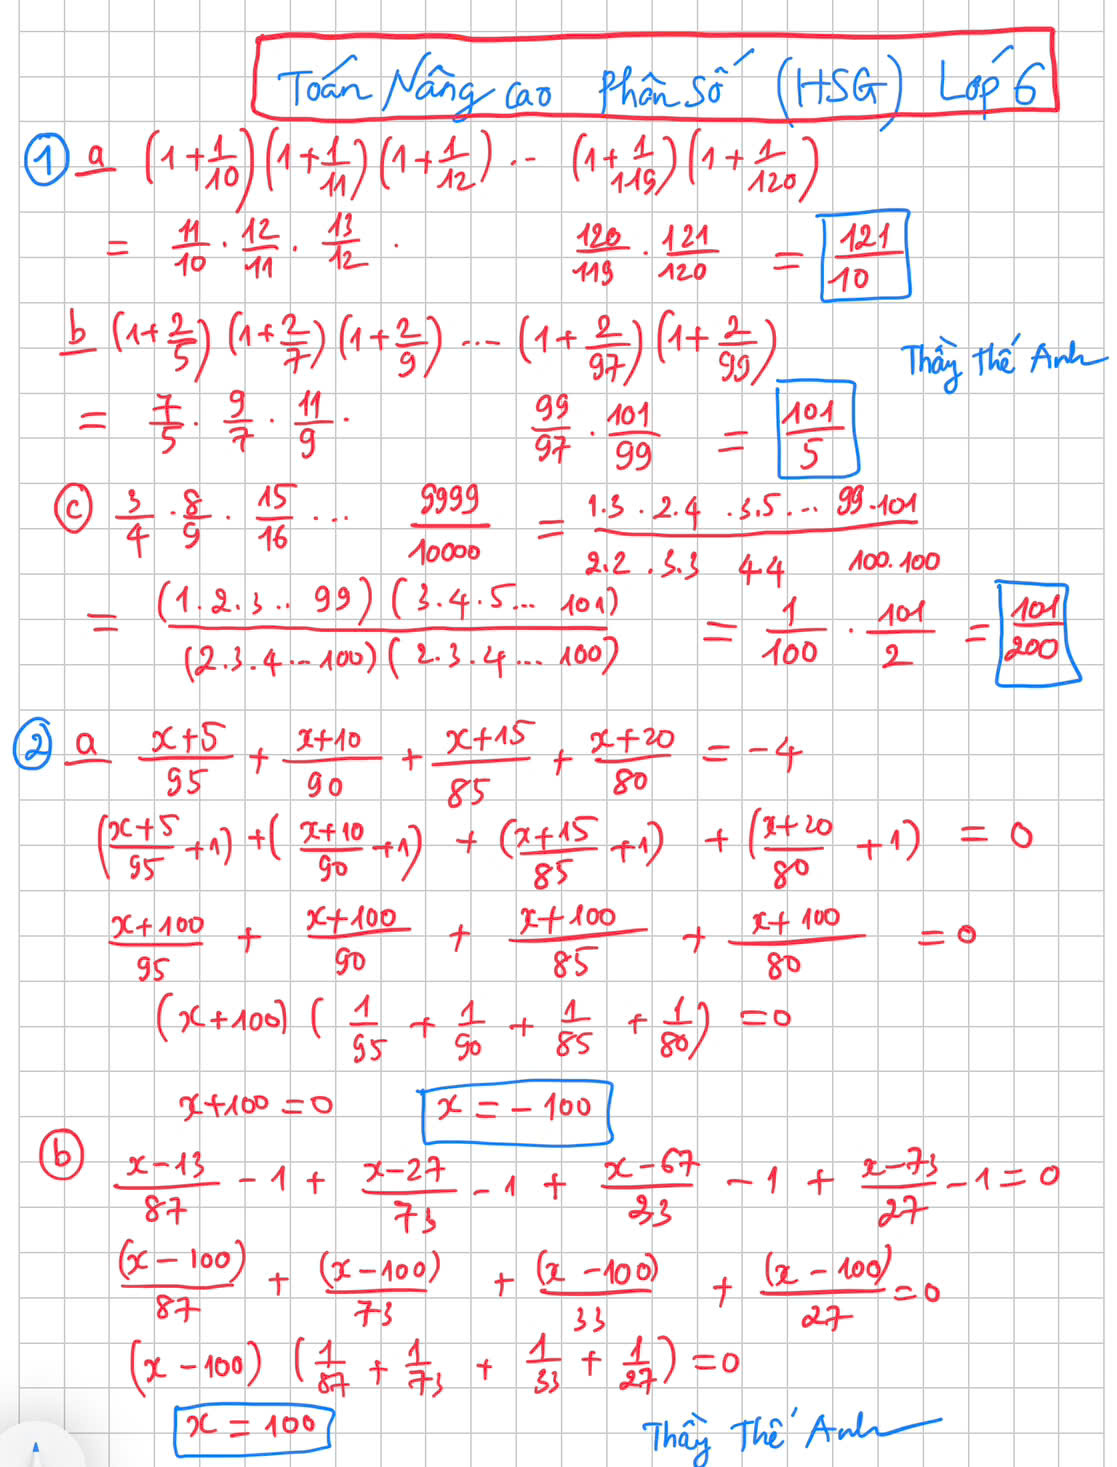 Toán Nâng cao Phân số (HSG) Lớp 6
① a (1+1/10)(1+1/11)(1+1/12)... (1+1/119)(1+1/120)
= 11/10 . 12/11 . 13/12 . 120/119 . 121/120 = 121/10
b (1+2/5)(1+2/7)(1+2/9)....(1+2/97)(1+2/99)
Thầy thế Anh
= 7/5 . 9/7 . 11/9 . 99/97 . 101/99 = 101/5
ⓒ 3/4 . 8/9 . 15/16 ... 9999/10000 = 1.3 . 2.4 . 3.5... 99.101 / 2.2 . 3.3 4.4 100.100
= (1.2.3...99)(3.4.5...101) / (2.3.4...100)(2.3.4...100) = 1/100 . 101/2 = 101/200
② a x+5/95 + x+10/90 + x+15/85 + x+20/80 = -4
(x+5/95 +1) + (x+10/90 +1) + (x+15/85 +1) + (x+20/80 +1) = 0
x+100/95 + x+100/90 + x+100/85 + x+100/80 = 0
(x+100) (1/95 + 1/90 + 1/85 + 1/80) = 0
x+100 = 0 x = -100
ⓑ x-13/87 - 1 + x-27/73 - 1 + x-67/33 - 1 + x-73/27 - 1 = 0
(x-100)/87 + (x-100)/73 + (x-100)/33 + (x-100)/27 = 0
(x-100) (1/87 + 1/73 + 1/33 + 1/27) = 0
x = 100
Thầy Thế Anh